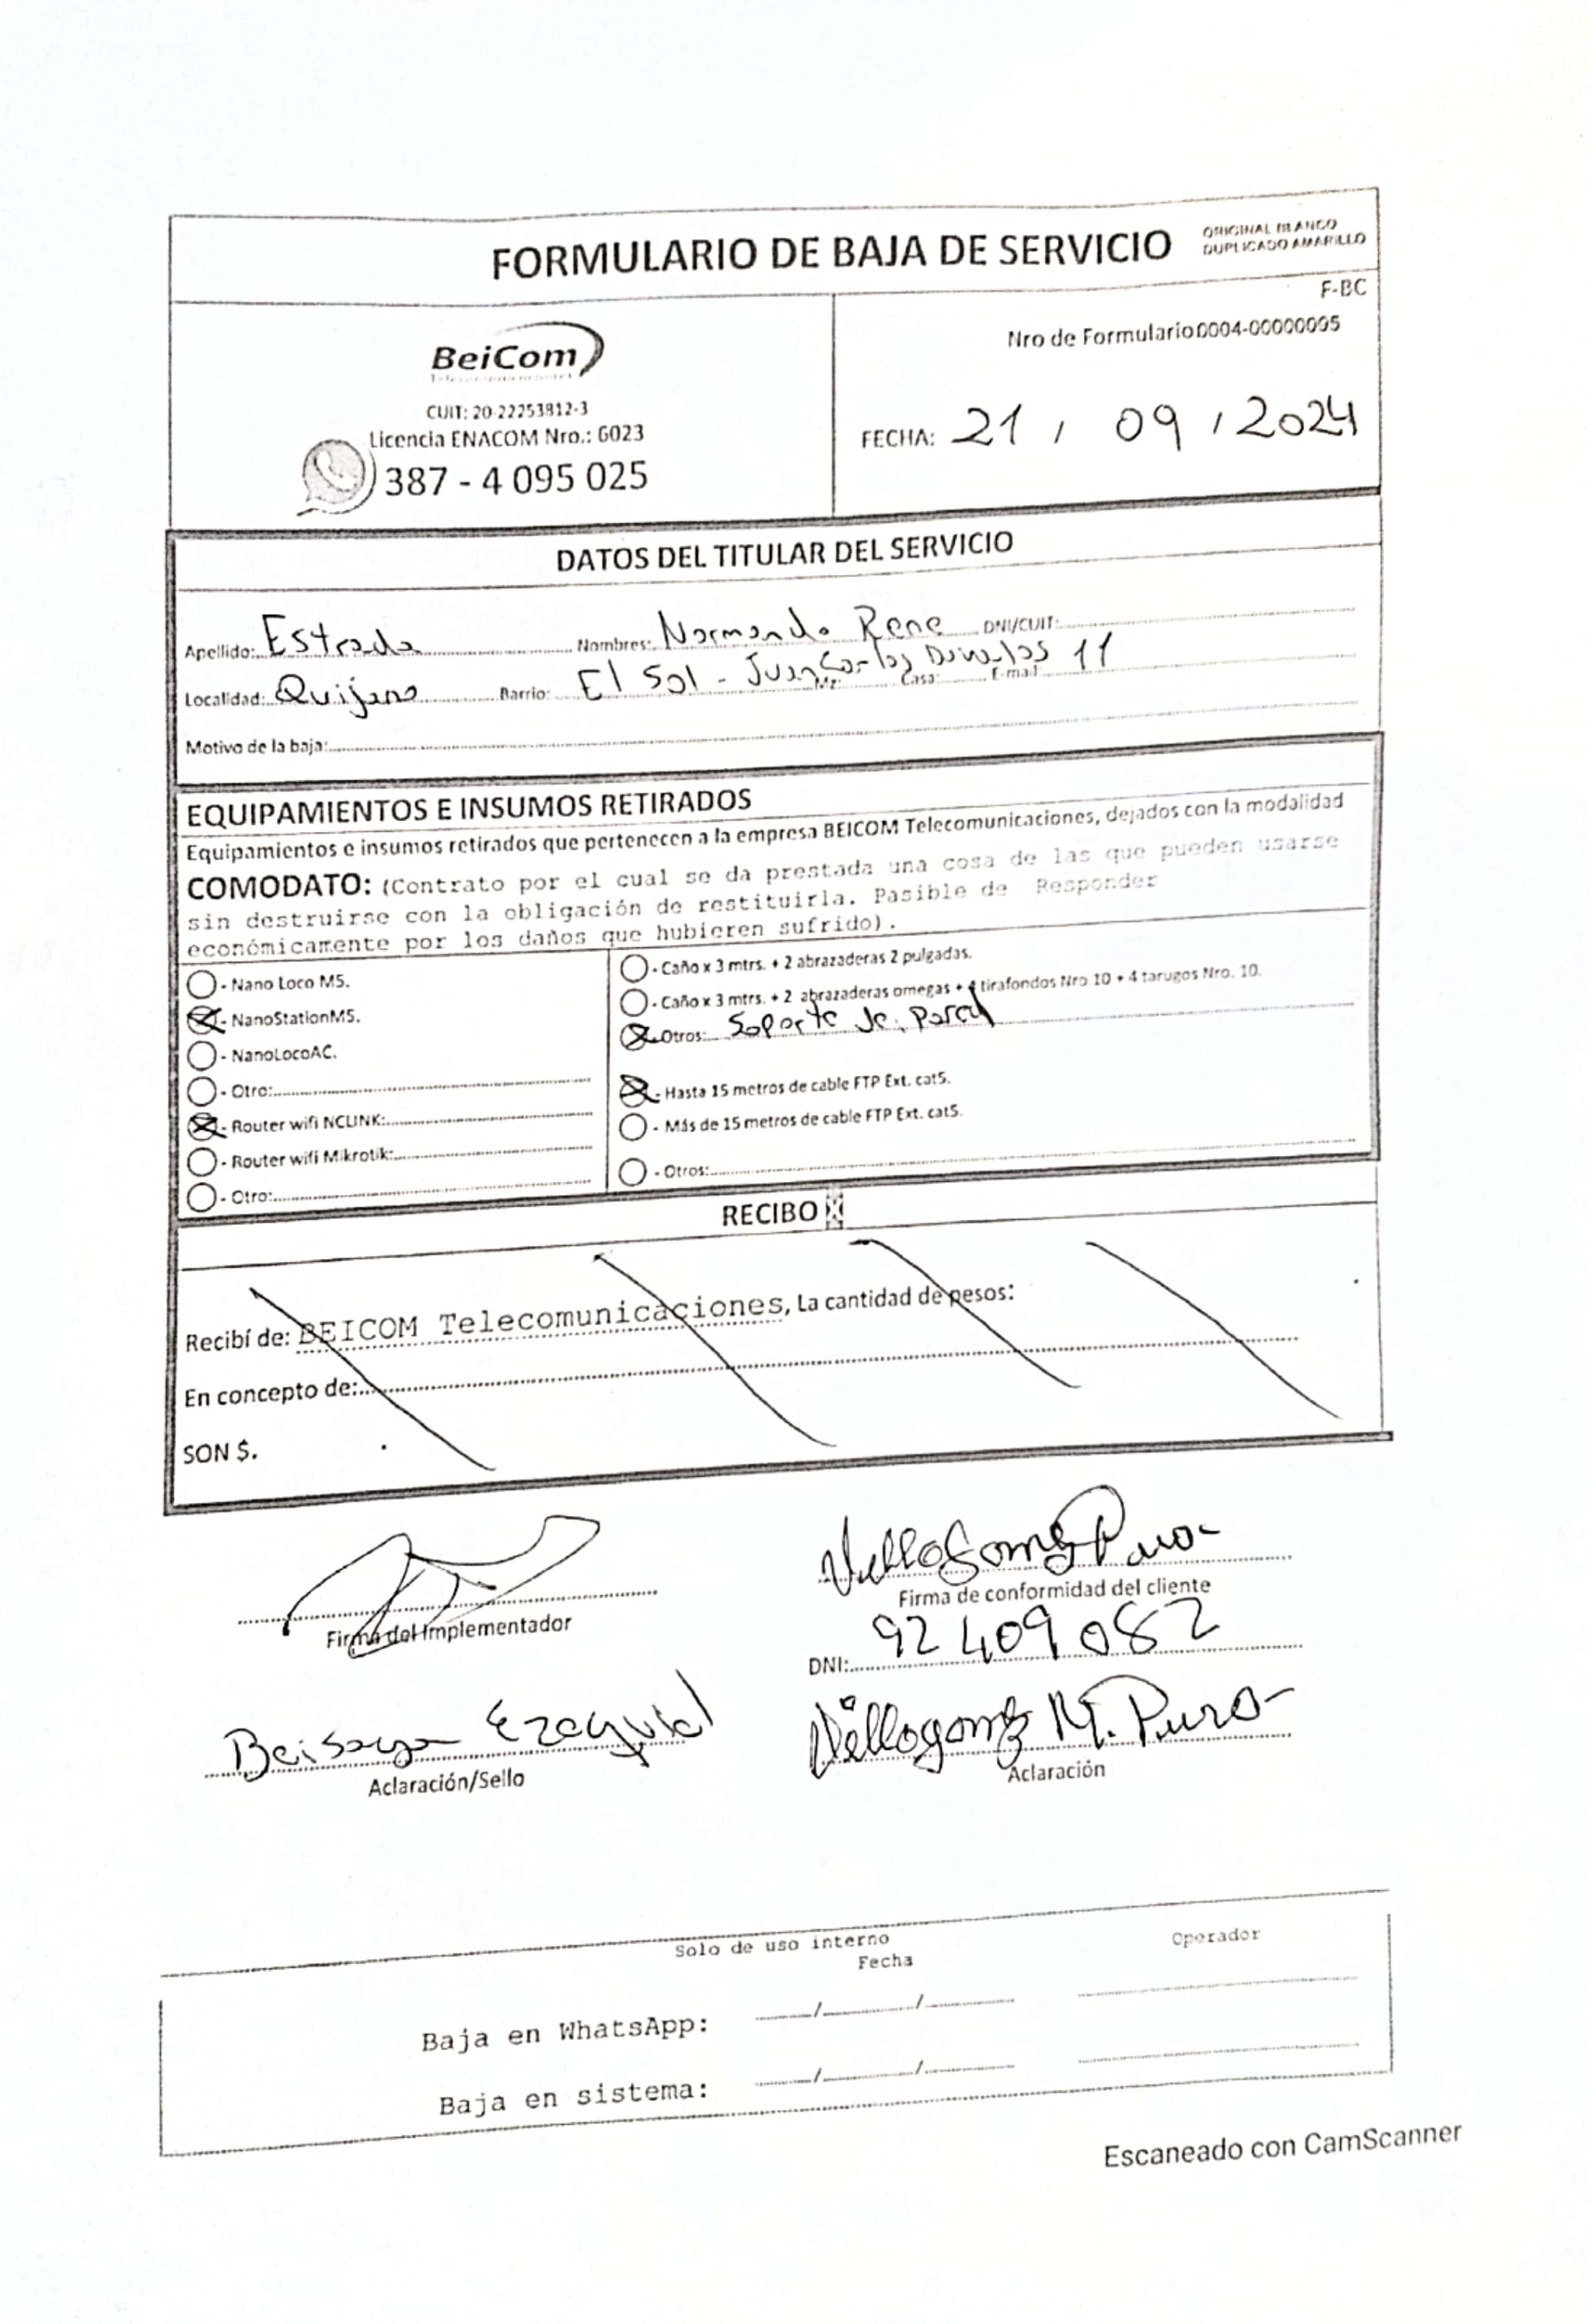 FORMULARIO DE BAJA DE SERVICIO
ORIGINAL BLANCO
DUPLICADO AMARILLO
F-BC
BeiCom
Telecomunicaciones
CUIT: 20-22253812-3
Licencia ENACOM Nro.: 6023
387 - 4 095 025
Nro de Formulario 0004-00000095
FECHA: 21 / 09 / 2024
DATOS DEL TITULAR DEL SERVICIO
Apellido: Estrada Nombres: Normando Rene DNI/CUIT:
Localidad: Quijano Barrio: El Sol - Juan Carlos Davalos 11 Mz: Casa: E-mail:
Motivo de la baja:
EQUIPAMIENTOS E INSUMOS RETIRADOS
Equipamientos e insumos retirados que pertenecen a la empresa BEICOM Telecomunicaciones, dejados con la modalidad
COMODATO: (Contrato por el cual se da prestada una cosa de las que pueden usarse
sin destruirse con la obligación de restituirla. Pasible de Responder
económicamente por los daños que hubieren sufrido).
- Nano Loco M5.
- NanoStationM5.
- NanoLocoAC.
- Otro:
- Router wifi NCLINK:
- Router wifi Mikrotik:
- Otro:
- Caño x 3 mtrs. + 2 abrazaderas 2 pulgadas.
- Caño x 3 mtrs. + 2 abrazaderas omegas + 4 tirafondos Nro 10 + 4 tarugos Nro. 10.
- Otros: Soporte de pared
- Hasta 15 metros de cable FTP Ext. cat5.
- Más de 15 metros de cable FTP Ext. cat5.
- Otros:
RECIBO X
Recibí de: BEICOM Telecomunicaciones, La cantidad de pesos:
En concepto de:
SON $.
Firma del Implementador
Firma de conformidad del cliente
DNI: 92409082
Ezequiel
Aclaración/Sello
Villogomez M. Pura
Aclaración
Solo de uso interno
Fecha
Operador
Baja en WhatsApp: / /
Baja en sistema: / /
Escaneado con CamScanner